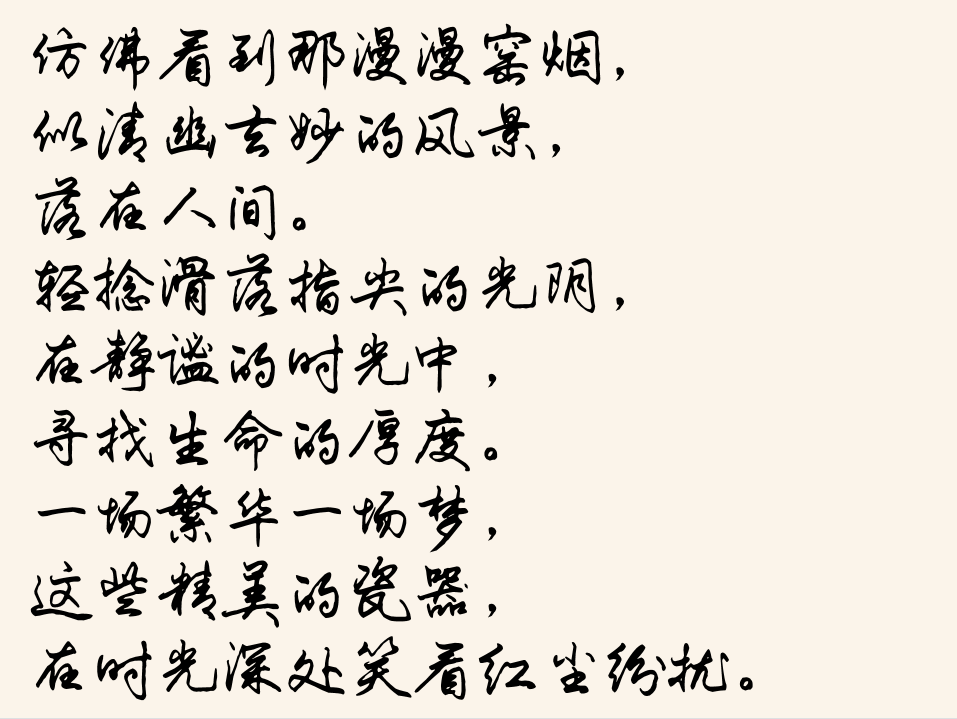 仿佛看到那漫漫窑烟，
似清幽玄妙的风景，
落在人间。
轻捻滑落指尖的光阴，
在静谧的时光中，
寻找生命的厚度。
一场繁华一场梦，
这些精美的瓷器，
在时光深处笑看红尘纷扰。